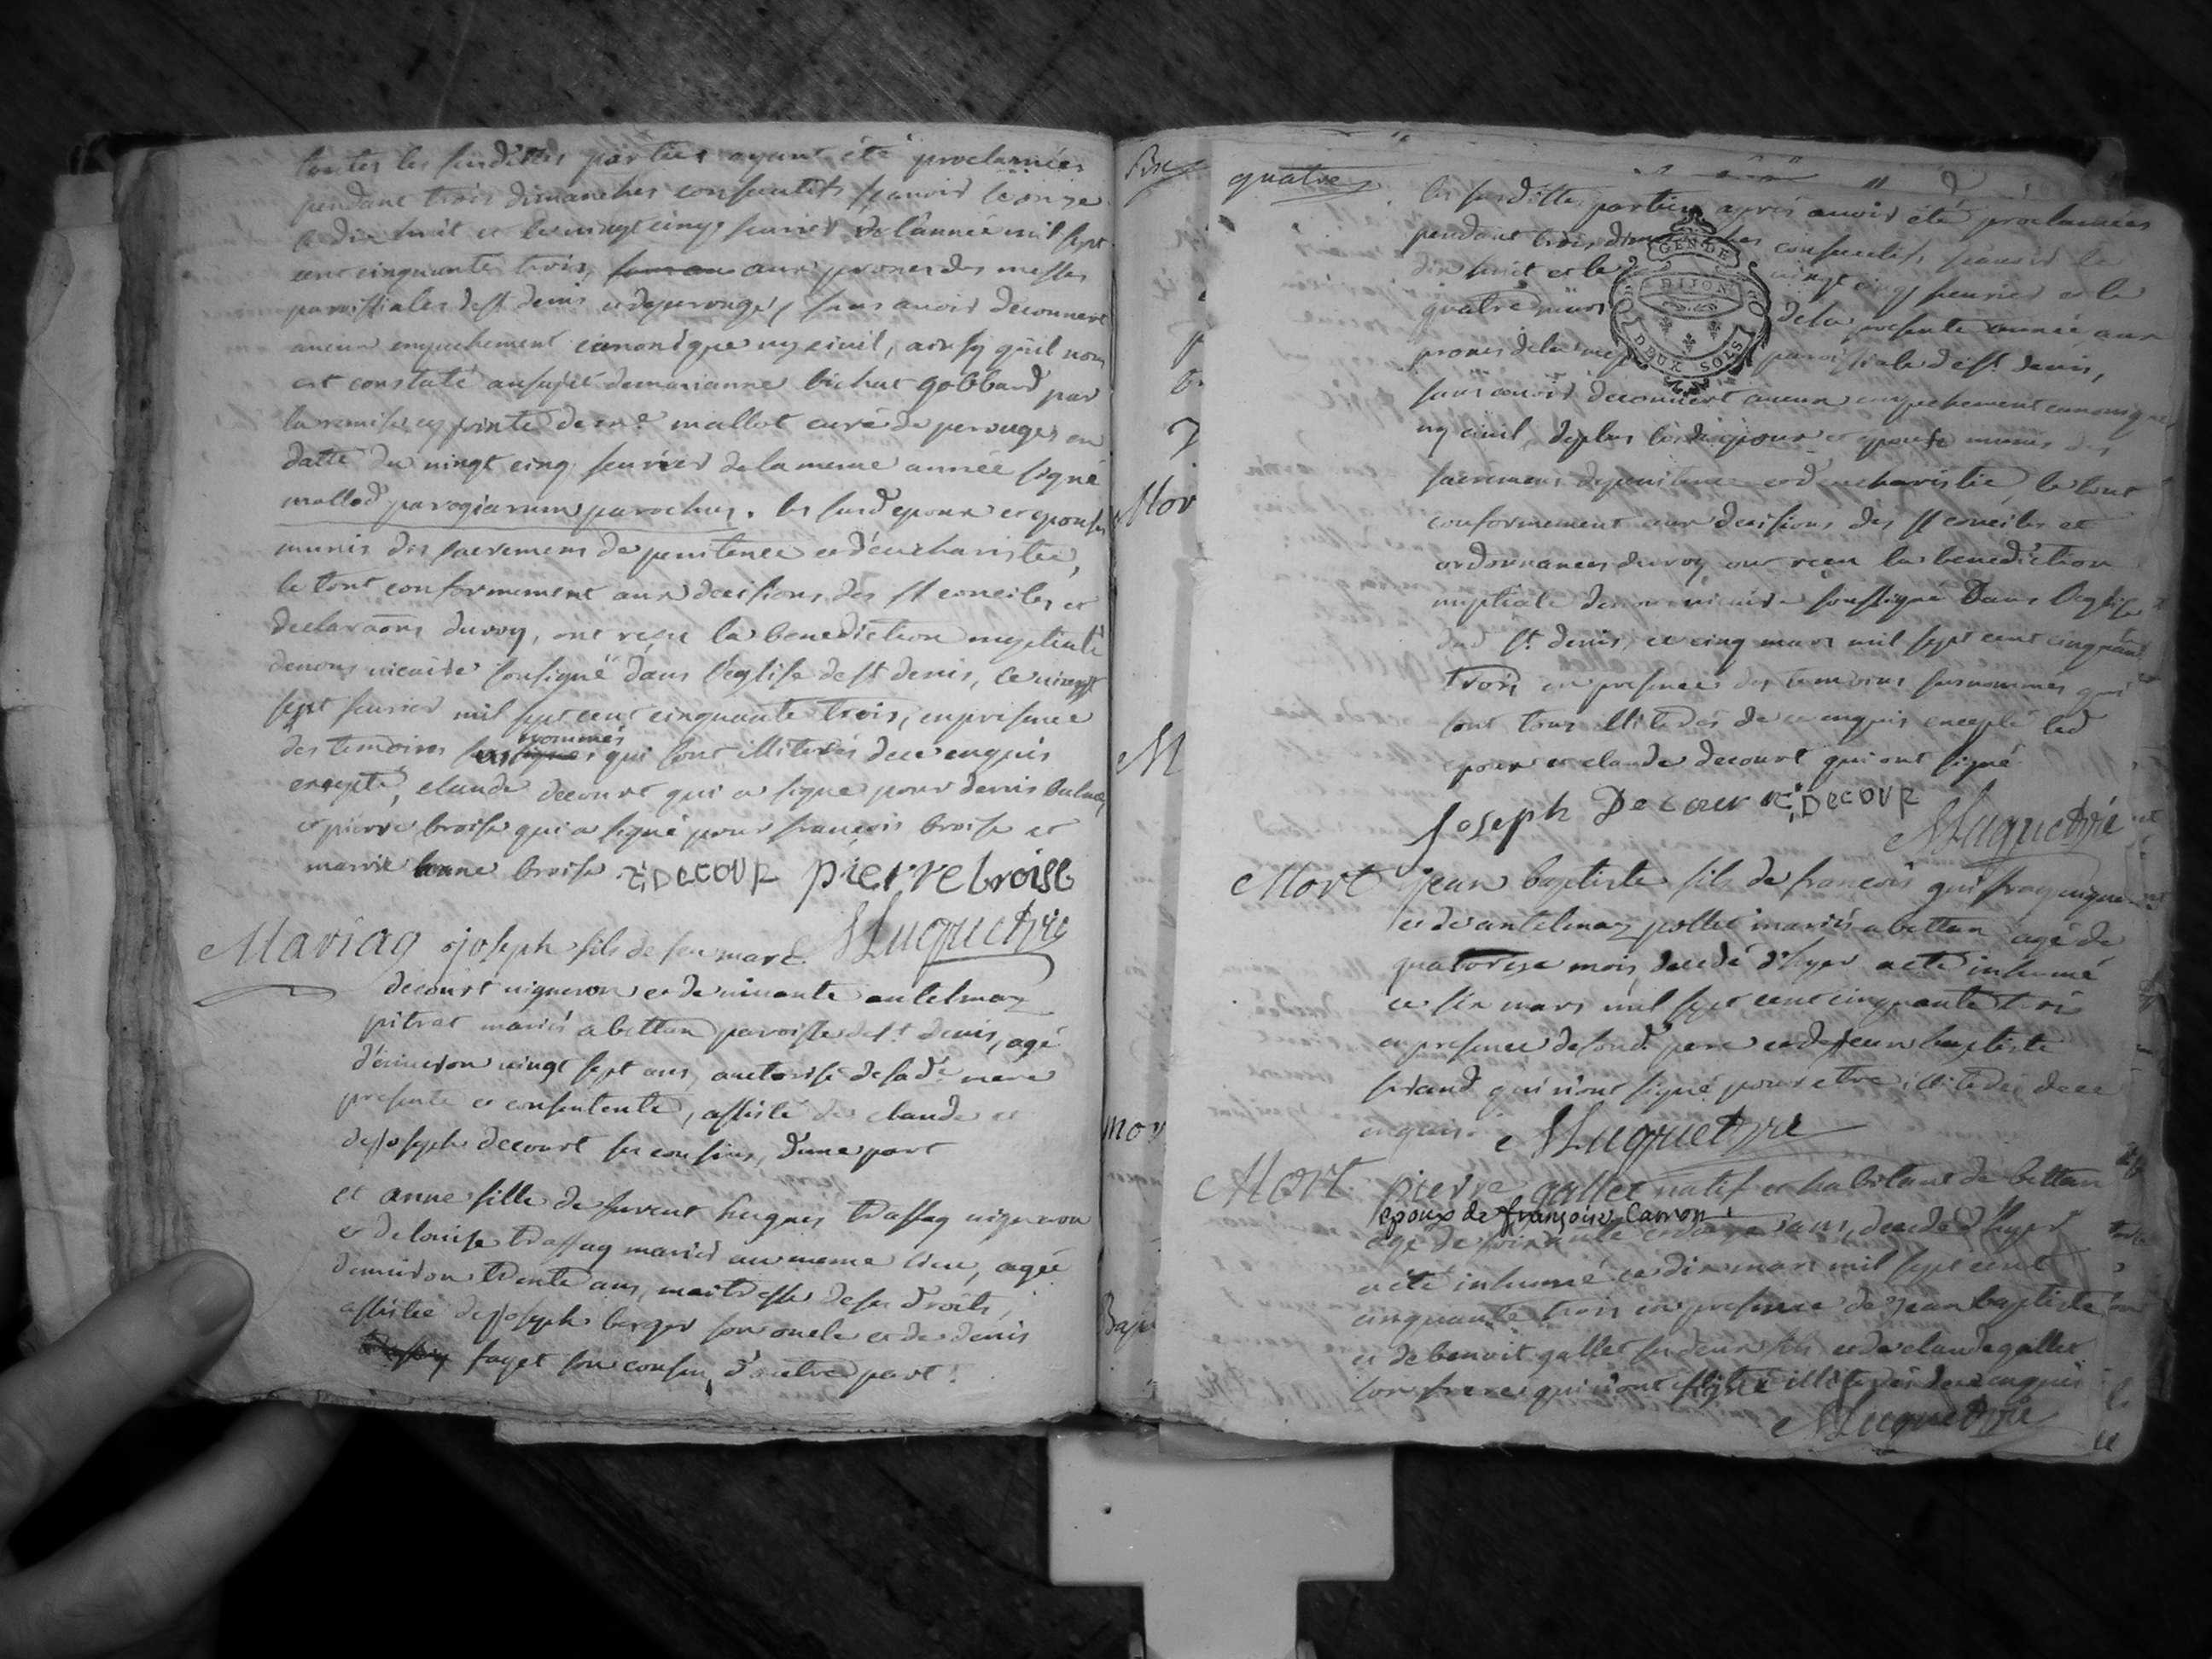 toutes les susdittes parties ayant été proclamées
pendant trois dimanches consecutifs sçavoir le onze
le dix huit et le vingt cinq fevrier de l'année mil sept
cent cinquante trois, aux prones des messes
paroissiales de st denis et de perouges, sans avoir decouvert
aucun empechement canonique ny civil, ainsy qu'il nous
est constaté au sujet de marianne bichat gobbard par
la remise cy jointe de mre mallet curé de perouges en
datte du vingt cinq fevrier de la meme année signé
mallod parogiarum parochus. les susd epoux et epouses
munis des sacremens de penitence et d'eucharistie,
le tout conformement aux decisions des st conciles et
declaraons du roy, ont reçu la benediction nuptiale
de nous vicaire sousigné dans l'eglise de st denis, ce vingt
sept fevrier mil sept cent cinquante trois, en presence
des temoins susnommés qui sont illiterés de ce enquis
excepté, claude decourt qui a signé pour denis
et pierre broise qui a signé pour françois broise et
marie anne broise. C; DECOUR pierre broise
SLuquetdre
Mariag joseph fils de feu marc
decourt vigneron et de vivante antelmaz
pitrat mariés a bettan paroisse de st denis, agé
d'environ vingt sept ans, auctorisé de sad mere
presente et consentente, assisté de claude et
de joseph decourt ses cousins, d'une part
et anne fille de furent hugues trassay vigneron
et de louise trassay mariés au meme lieu, agée
d'environ trente ans, maitresse de ses droits,
assistée de joseph berger son oncle et de denis
fayet son cousin, d'autre part.
quatre
les susditte parties après avoir été proclamées
pendant trois dimanches consecutifs sçavoir le
dix huit et le vingt cinq fevrier et le
quatre mars de la presente année aux
prones de la messe paroissiale de st denis,
GEN DE
DIJON
DEUX SOLS
sans avoir decouvert aucun empechement canonique
ny civil, de plus lesd epoux et epouse munis des
sacremens de penitence et d'eucharistie, le tout
conformement aux decisions des st conciles et
ordonnances du roy ont reçu la benediction
nuptiale de nous vicaire soussigné Dans l'eglise
dud st denis, ce cinq mars mil sept cent cinquante
trois en presence des temoins susnommés qui
sont tous illiterés de ce enquis excepté led
epoux et claude decourt qui ont signé
Joseph Decour C; DECOUR
SLuquetdre
Mort jean baptiste fils de françois
et de antelmaz pollet mariés a bettan agé de
quatorze mois, decedé d'hyer a eté inhumé
ce six mars mil sept cent cinquante trois
en presence de sond pere et de jean baptiste
qui n'ont signé pour etre illiterés de ce
enquis. SLuquetdre
Mort pierre gallet natif et habitant de bettan
epoux de françoise Carron
agé de soixante et ans, decedé d'hyer
a eté inhumé ce dix mars mil sept cent
cinquante trois en presence de jean baptiste
et de benoit gallet ses deux fils et de claude gallet
son frere qui n'ont signé illiterés de ce enquis
SLuquetdre